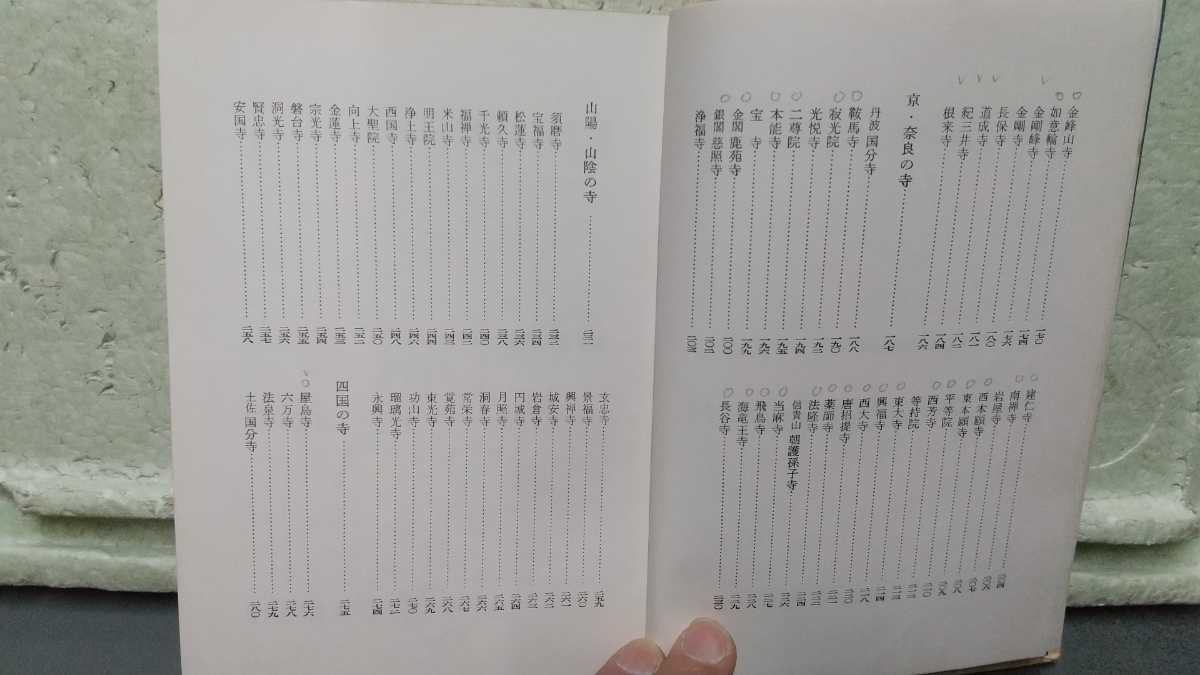 金峰山寺 一七〇
如意輪寺
金剛峰寺
金剛寺 一七四
長保寺 一七六
道成寺 一八〇
紀三井寺 一八一
根来寺 一八二
一八四
一八六
京・奈良の寺 一八七
丹波国分寺
鞍馬寺 一八八
寂光院 一九〇
光悦寺 一九二
二尊院 一九四
本能寺 一九五
宝寺 一九六
金閣 鹿苑寺 一九九
銀閣 慈照寺 二〇〇
浄福寺
建仁寺
南禅寺 二〇四
岩屋寺
西本願寺 二〇六
東本願寺 二〇七
平等院 二〇八
西芳寺 二〇九
等持院 二一〇
東大寺
興福寺
西大寺
唐招提寺
薬師寺
法隆寺
信貴山 朝護孫子寺
当麻寺
飛鳥寺
海竜王寺
長谷寺
山陽・山陰の寺 二三一
須磨寺 二三三
宝福寺 二三四
松蓮寺 二三六
頼久寺 二三八
千光寺 二四〇
福禅寺 二四二
米山寺 二四三
明王院 二四四
浄土寺 二四六
西国寺 二四八
大聖院 二五〇
向上寺 二五二
金蓮寺 二五三
宗光寺 二五四
磐台寺 二五五
洞光寺 二五六
賢忠寺 二五七
安国寺 二五八
玄忠寺 二五九
景福寺 二六〇
興禅寺 二六一
城安寺 二六二
岩倉寺 二六三
円城寺 二六四
月照寺 二六五
洞春寺 二六六
常栄寺 二六七
覚苑寺 二六八
東光寺 二六九
功山寺 二七〇
瑠璃光寺 二七二
永興寺 二七四
四国の寺 二七五
屋島寺 二七六
六万寺 二七八
法泉寺 二七九
土佐国分寺 二八〇